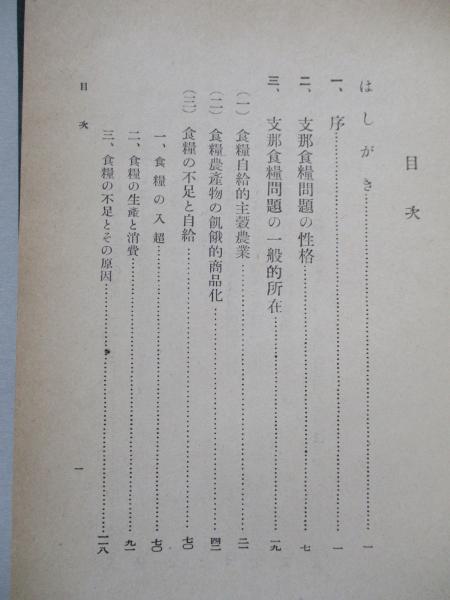 目次
はしがき……一
一、序……一
二、支那食糧問題の性格……七
三、支那食糧問題の一般的所在……一九
(一) 食糧自給的主穀農業……二一
(二) 食糧農產物の飢餓的商品化……四二
(三) 食糧の不足と自給……七〇
一、食糧の入超……七〇
二、食糧の生產と消費……九一
三、食糧の不足とその原因……一一八
目次
一